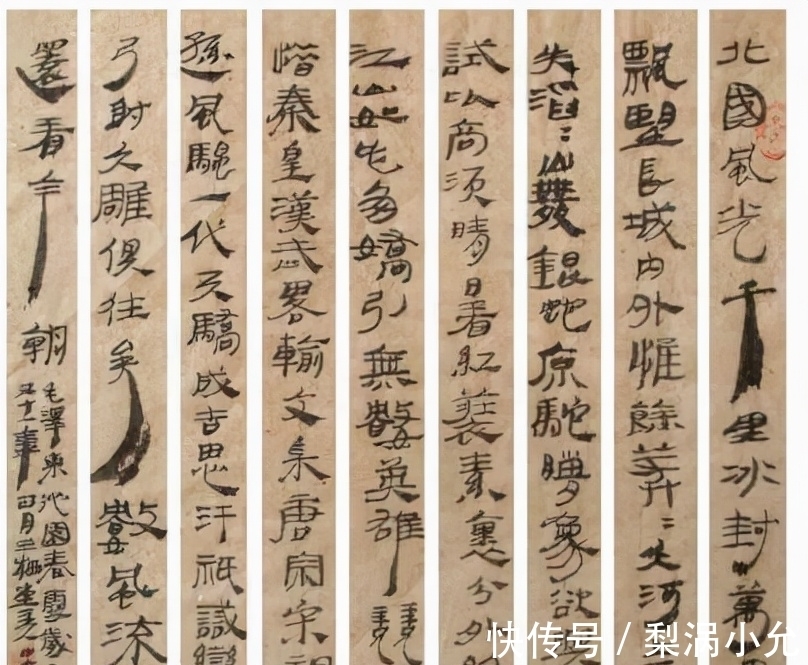 北國風光千里冰封萬
飄望長城內外惟餘莽〻大河
失滔〻山舞銀蛇原馳蠟象欲
試比高須晴日看紅裝素裹分外
江山如此多嬌引無數英雄競
惜秦皇漢武略輸文采唐宗宋祖
遜風騷一代天驕成吉思汗祇識彎
弓射大雕俱往矣數風流
還看今朝
毛澤東沁園春雪歲
四月
快传号 / 梨涡小允